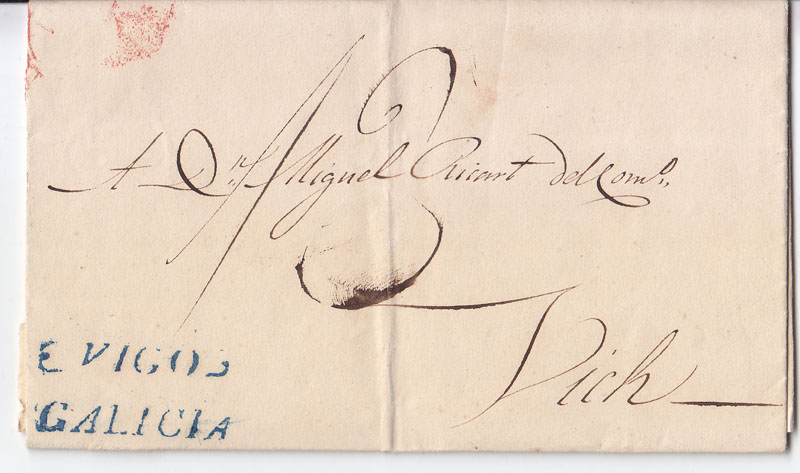 A Dn. Miguel Ricart del Como.
13
Vich
E VIGO
GALICIA